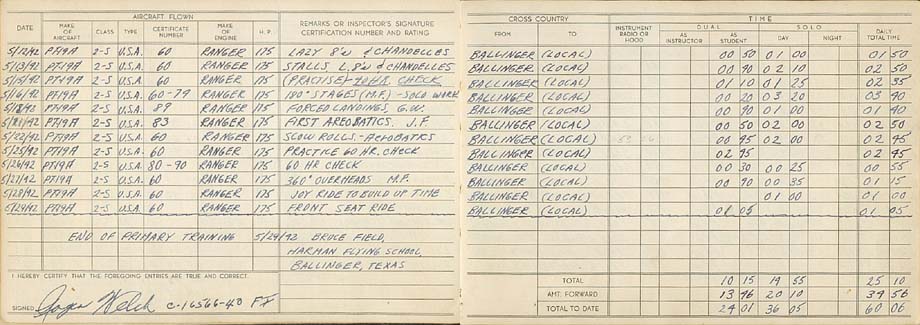 AIRCRAFT FLOWN
DATE MAKE OF AIRCRAFT CLASS TYPE CERTIFICATE NUMBER MAKE OF ENGINE H. P. REMARKS OR INSPECTOR'S SIGNATURE CERTIFICATION NUMBER AND RATING
5/12/42 PT19A 2-S U.S.A. 60 RANGER 175 LAZY 8's & CHANDELLES
5/13/42 PT19A 2-S U.S.A. 60 RANGER 175 STALLS L. 8's & CHANDELLES
5/15/42 PT19A 2-S U.S.A. 60 RANGER 175 (PRACTISE) 40 HR. CHECK
5/16/42 PT19A 2-S U.S.A. 60-79 RANGER 175 STAGES (M.F.) - SOLO WORK
5/18/42 PT19A 2-S U.S.A. 89 RANGER 175 FORCED LANDINGS, G.W.
5/21/42 PT19A 2-S U.S.A. 83 RANGER 175 FIRST AREOBATICS. J.F.
5/22/42 PT19A 2-S U.S.A. 60 RANGER 175 SLOW ROLLS - ACROBATICS
5/25/42 PT19A 2-S U.S.A. 60 RANGER 175 PRACTICE 60 HR. CHECK
5/26/42 PT19A 2-S U.S.A. 80-90 RANGER 175 60 HR CHECK
5/27/42 PT19A 2-S U.S.A. 60 RANGER 175 360° OVERHEADS M.F.
5/28/42 PT19A 2-S U.S.A. 60 RANGER 175 JOY RIDE TO BUILD UP TIME
5/29/42 PT19A 2-S U.S.A. 60 RANGER 175 FRONT SEAT RIDE
END OF PRIMARY TRAINING 5/29/42 BRUCE FIELD,
HARMAN FLYING SCHOOL,
BALLINGER, TEXAS
I HEREBY CERTIFY THAT THE FOREGOING ENTRIES ARE TRUE AND CORRECT.
SIGNED Roger Welch C-16566-40
CROSS COUNTRY TIME
FROM TO INSTRUMENT RADIO OR HOOD DUAL AS INSTRUCTOR AS STUDENT SOLO DAY NIGHT DAILY TOTAL TIME
BALLINGER (LOCAL) 00 50 01 00 01 50
BALLINGER (LOCAL) 00 40 02 10 02 50
BALLINGER (LOCAL) 01 10 01 25 02 35
BALLINGER (LOCAL) 00 20 03 20 03 40
BALLINGER (LOCAL) 00 40 01 00 01 40
BALLINGER (LOCAL) 00 50 02 00 02 50
BALLINGER (LOCAL) 00 45 02 00 02 45
BALLINGER (LOCAL) 02 45 02 45
BALLINGER (LOCAL) 00 30 00 25 00 55
BALLINGER (LOCAL) 00 40 00 35 01 15
BALLINGER (LOCAL) 01 00 01 00
BALLINGER (LOCAL) 01 05 01 05
TOTAL 10 15 14 55 25 10
AMT. FORWARD 13 46 20 10 34 56
TOTAL TO DATE 24 01 36 05 60 06